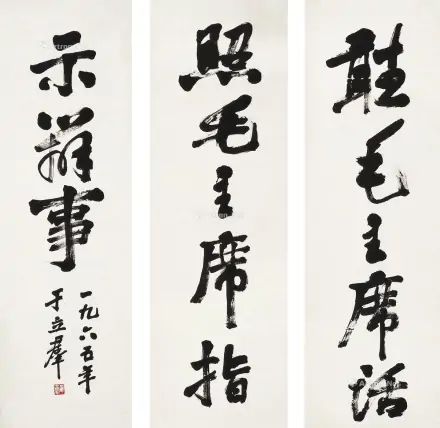 聽毛主席話
照毛主席指
示辦事
一九六五年
于立羣